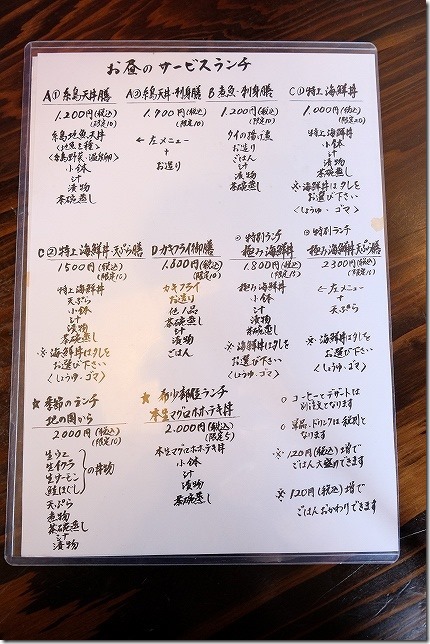 お昼のサービスランチ
A① 糸島天丼膳
1.200円(税込)
(限定10)
糸島地魚天丼
(地魚5種)
(糸島野菜・温泉卵)
小鉢
汁
漬物
茶碗蒸し
A② 糸島天丼・刺身膳
1.900円(税込)
(限定10)
← 左メニュー
+
お造り
B 煮魚・刺身膳
1.200円(税込)
(限定10)
お造り
ごはん
汁
漬物
茶碗蒸し
C① 特上海鮮丼
1.000円(税込)
(限定20)
特上海鮮丼
小鉢
汁
漬物
茶碗蒸し
※ 海鮮丼はタレを
お選び下さい
<しょうゆ・ゴマ>
C② 特上海鮮丼 天ぷら膳
1500円(税込)
(限定10)
特上海鮮丼
天ぷら
小鉢
汁
漬物
茶碗蒸し
※ 海鮮丼はタレを
お選び下さい
<しょうゆ・ゴマ>
D カキフライ御膳
1.800円(税込)
(限定10)
カキフライ
お造り
他1品
茶碗蒸し
汁
漬物
ごはん
① 特別ランチ
極み海鮮丼
1.800円(税込)
(限定15)
極み海鮮丼
小鉢
汁
漬物
茶碗蒸し
※ 海鮮丼はタレを
お選び下さい
<しょうゆ・ゴマ>
② 特別ランチ
極み海鮮丼天ぷら膳
2300円(税込)
(限定10)
← 左メニュー
+
天ぷら
※ 海鮮丼はタレを
お選び下さい
<しょうゆ・ゴマ>
☆ 季節のランチ
北の国から
2000円(税込)
(限定10)
生ウニ
生イクラ
生サーモン
鮭ほぐし
の丼物
天ぷら
煮物
茶碗蒸し
汁
漬物
☆ 希少部位ランチ
本生マグロホホテキ丼
2.000円(税込)
(限定5)
本生マグロホホテキ丼
小鉢
汁
漬物
茶碗蒸し
○ コーヒーとデザートは
別注文となります
○ 単品、ドリンクは税別と
なります
※ 120円(税込)増で
ごはん大盛りできます
※ 120円(税込)増で
ごはんおかわりできます